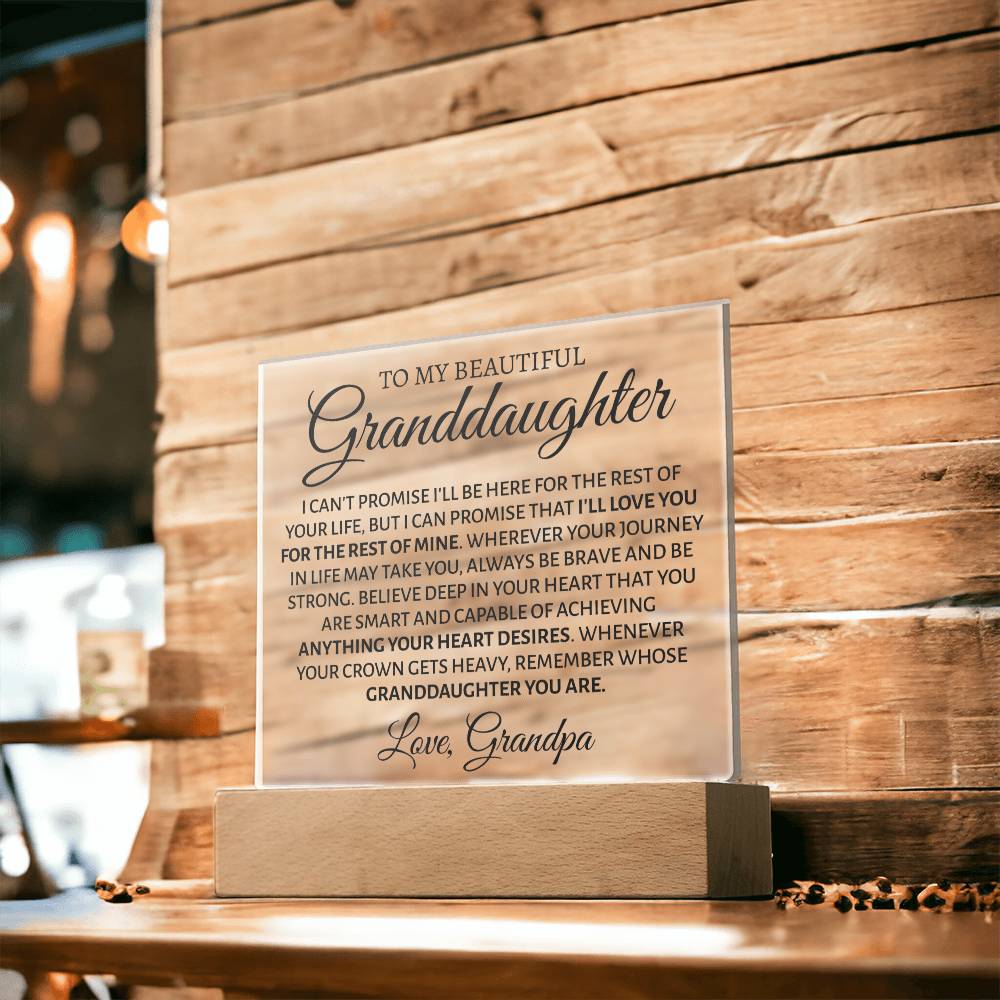 TO MY BEAUTIFUL
Granddaughter
I CAN'T PROMISE I'LL BE HERE FOR THE REST OF
YOUR LIFE, BUT I CAN PROMISE THAT I'LL LOVE YOU
FOR THE REST OF MINE. WHEREVER YOUR JOURNEY
IN LIFE MAY TAKE YOU, ALWAYS BE BRAVE AND BE
STRONG. BELIEVE DEEP IN YOUR HEART THAT YOU
ARE SMART AND CAPABLE OF ACHIEVING
ANYTHING YOUR HEART DESIRES. WHENEVER
YOUR CROWN GETS HEAVY, REMEMBER WHOSE
GRANDDAUGHTER YOU ARE.
Love, Grandpa